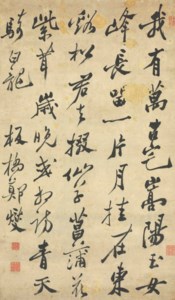 我有萬古宅嵩陽玉女
峰長留一片月挂在東
谿松君去掇仙草菖蒲花
紫茸歲晚或相訪青天
騎白龍 板橋鄭燮